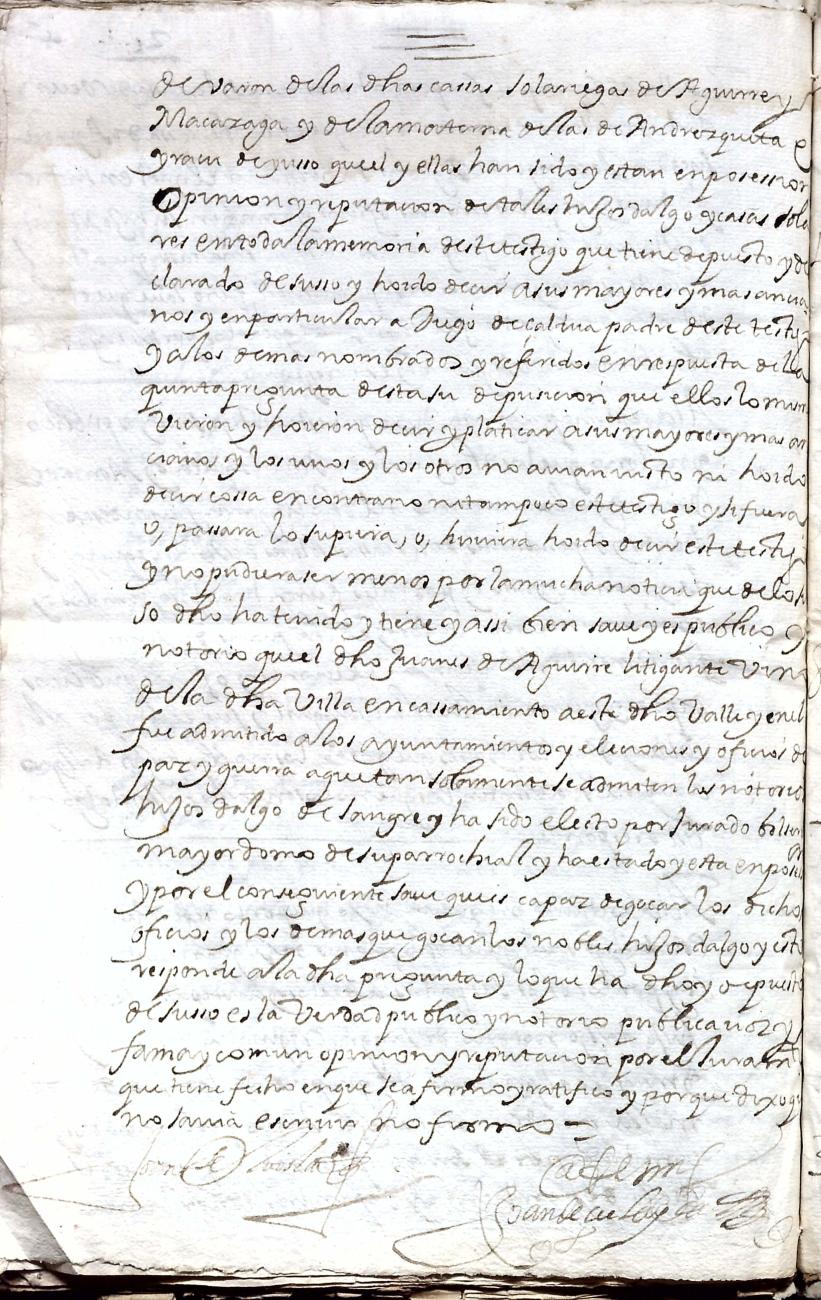 de varon de las dhas cassas solariegas de Aguirre y
Macazaga y de la materna de las de Andrezqueta e
yraeu de yusso que el y ellas han sido y estan en possession
Opinion y reputacion de tales hijos dalgo y casas sola
res en toda la memoria deste testigo que tiene depuesto y de
clarado de susso y hoido decir a sus mayores y mas ancia
nos y en particular a Diego de çaldua padre deste testi
y a los demas nombrados y referidos en respuesta de lla
quinta pregunta desta su deposicion que ellos lo mism
vieron y hoieron decir y platicar a sus mayores y mas an
cianos y los unos y los otros no avian visto ni hoido
decir cossa en contrario ni tampoco este testigo y si fuera
o, passara lo supiera, o, huviera hoido decir este testi
y no pudiera ser menos por la mucha noticia que de lo su
so dho ha tenido y tiene y assi bien save y es publico y
notorio que el dho Juanes de Aguirre litigante vino
de la dha Villa en cassamiento a este dho Valle y en el
fue admitido a los ayuntamientos y eleciones y oficios de
paz y guerra a que tan solamente se admiten los notorios
hijos dalgo de sangre y ha sido electo por Jurado
mayordomo de su parrochial y ha estado y esta en poses
y por el consequiente save que es capaz de goçar los dicho
oficios y los demas que gocan los nobles hijos dalgo y esto
responde a la dha pregunta y lo que ha dho y depuesto
de susso es la Verdad publico y notorio publica voz y
fama y comun opinion y reputacion por el Juram
que tiene fecho en que se afirmo y ratifico y porque dixo q
no savia escrivir no firmo =
Ante mi